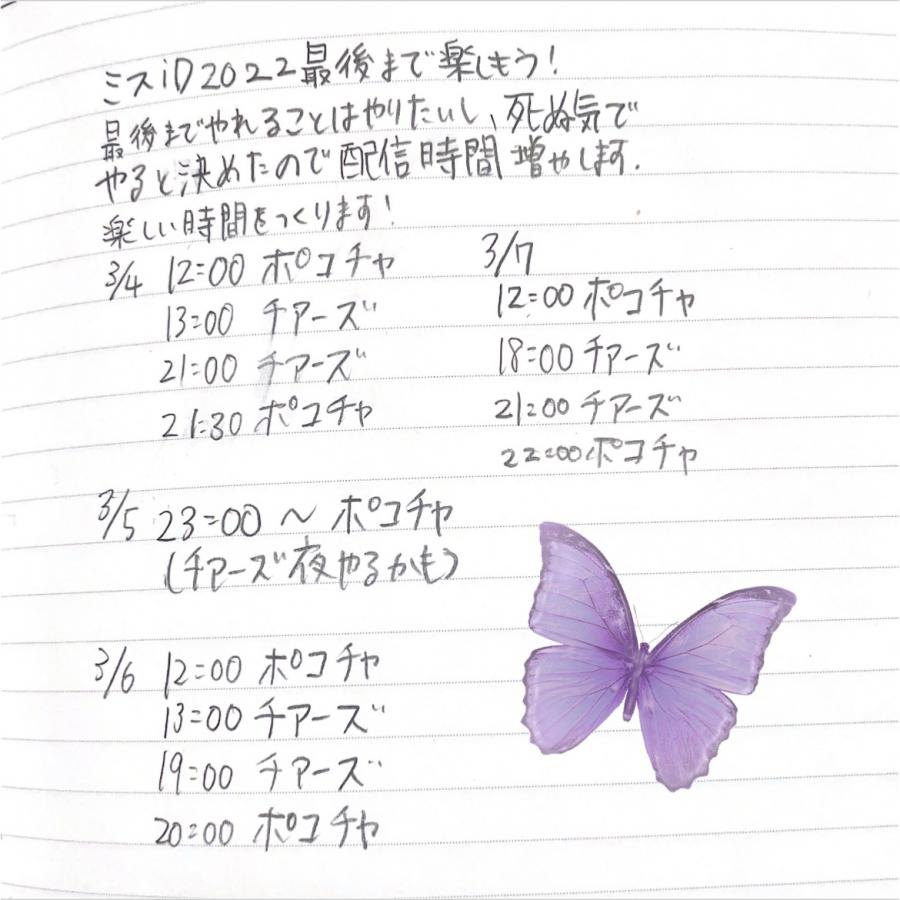 ミスiD2022最後まで楽しもう!
最後までやれることはやりたいし、死ぬ気で
やると決めたので配信時間増やします.
楽しい時間をつくります!
3/4 12:00 ポコチャ
13:00 チアーズ
21:00 チアーズ
21:30 ポコチャ
3/5 23:00 〜 ポコチャ
(チアーズ夜やるかも)
3/6 12:00 ポコチャ
13:00 チアーズ
19:00 チアーズ
20:00 ポコチャ
3/7
12:00 ポコチャ
18:00 チアーズ
21:00 チアーズ
22:00 ポコチャ